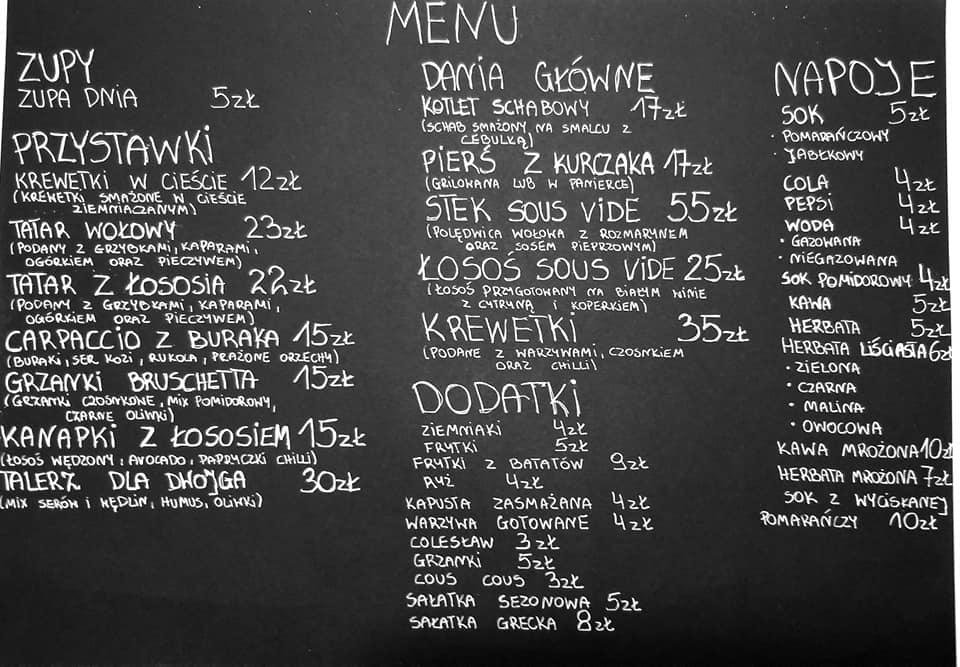 MENU
ZUPY
ZUPA DNIA 5zł
PRZYSTAWKI
KREWETKI W CIEŚCIE 12zł
(KREWETKI SMAŻONE W CIEŚCIE
ZIEMNIACZANYM)
TATAR WOŁOWY 23zł
(PODANY Z GRZYBKAMI, KAPARAMI,
OGÓRKIEM ORAZ PIECZYWEM)
TATAR Z ŁOSOSIA 22zł
(PODANY Z GRZYBKAMI, KAPARAMI,
OGÓRKIEM ORAZ PIECZYWEM)
CARPACCIO Z BURAKA 15zł
(BURAKI, SER KOZI, RUKOLA, PRAŻONE ORZECHY)
GRZANKI BRUSCHETTA 15zł
(GRZANKI CZOSNKOWE, MIX POMIDOROWY,
CZARNE OLIWKI)
KANAPKI Z ŁOSOSIEM 15zł
(ŁOSOŚ WĘDZONY, AVOCADO, PAPRYCZKI CHILLI)
TALERZ DLA DWOJGA 30zł
(MIX SERÓW I WĘDLIN, HUMUS, OLIWKI)
DANIA GŁÓWNE
KOTLET SCHABOWY 17zł
(SCHAB SMAŻONY NA SMALCU Z
CEBULKĄ)
PIERŚ Z KURCZAKA 17zł
(GRILOWANA LUB W PANIERCE)
STEK SOUS VIDE 55zł
(POLĘDWICA WOŁOWA Z ROZMARYNEM
ORAZ SOSEM PIEPRZOWYM)
ŁOSOŚ SOUS VIDE 25zł
(ŁOSOŚ PRZYGOTOWANY NA BIAŁYM WINIE
Z CYTRYNĄ I KOPERKIEM)
KREWETKI 35zł
(PODANE Z WARZYWAMI, CZOSNKIEM
ORAZ CHILLI)
DODATKI
ZIEMNIAKI 4zł
FRYTKI 5zł
FRYTKI Z BATATÓW 9zł
RYŻ 4zł
KAPUSTA ZASMAŻANA 4zł
WARZYWA GOTOWANE 4zł
COLESŁAW 3zł
GRZANKI 5zł
COUS COUS 3zł
SAŁATKA SEZONOWA 5zł
SAŁATKA GRECKA 8zł
NAPOJE
SOK 5zł
• POMARAŃCZOWY
• JABŁKOWY
COLA 4zł
PEPSI 4zł
WODA 4zł
• GAZOWANA
• NIEGAZOWANA
SOK POMIDOROWY 4zł
KAWA 5zł
HERBATA 5zł
HERBATA LIŚCIASTA 6zł
• ZIELONA
• CZARNA
• MALINA
• OWOCOWA
KAWA MROŻONA 10zł
HERBATA MROŻONA 7zł
SOK Z WYCISKANEJ
POMARAŃCZY 10zł